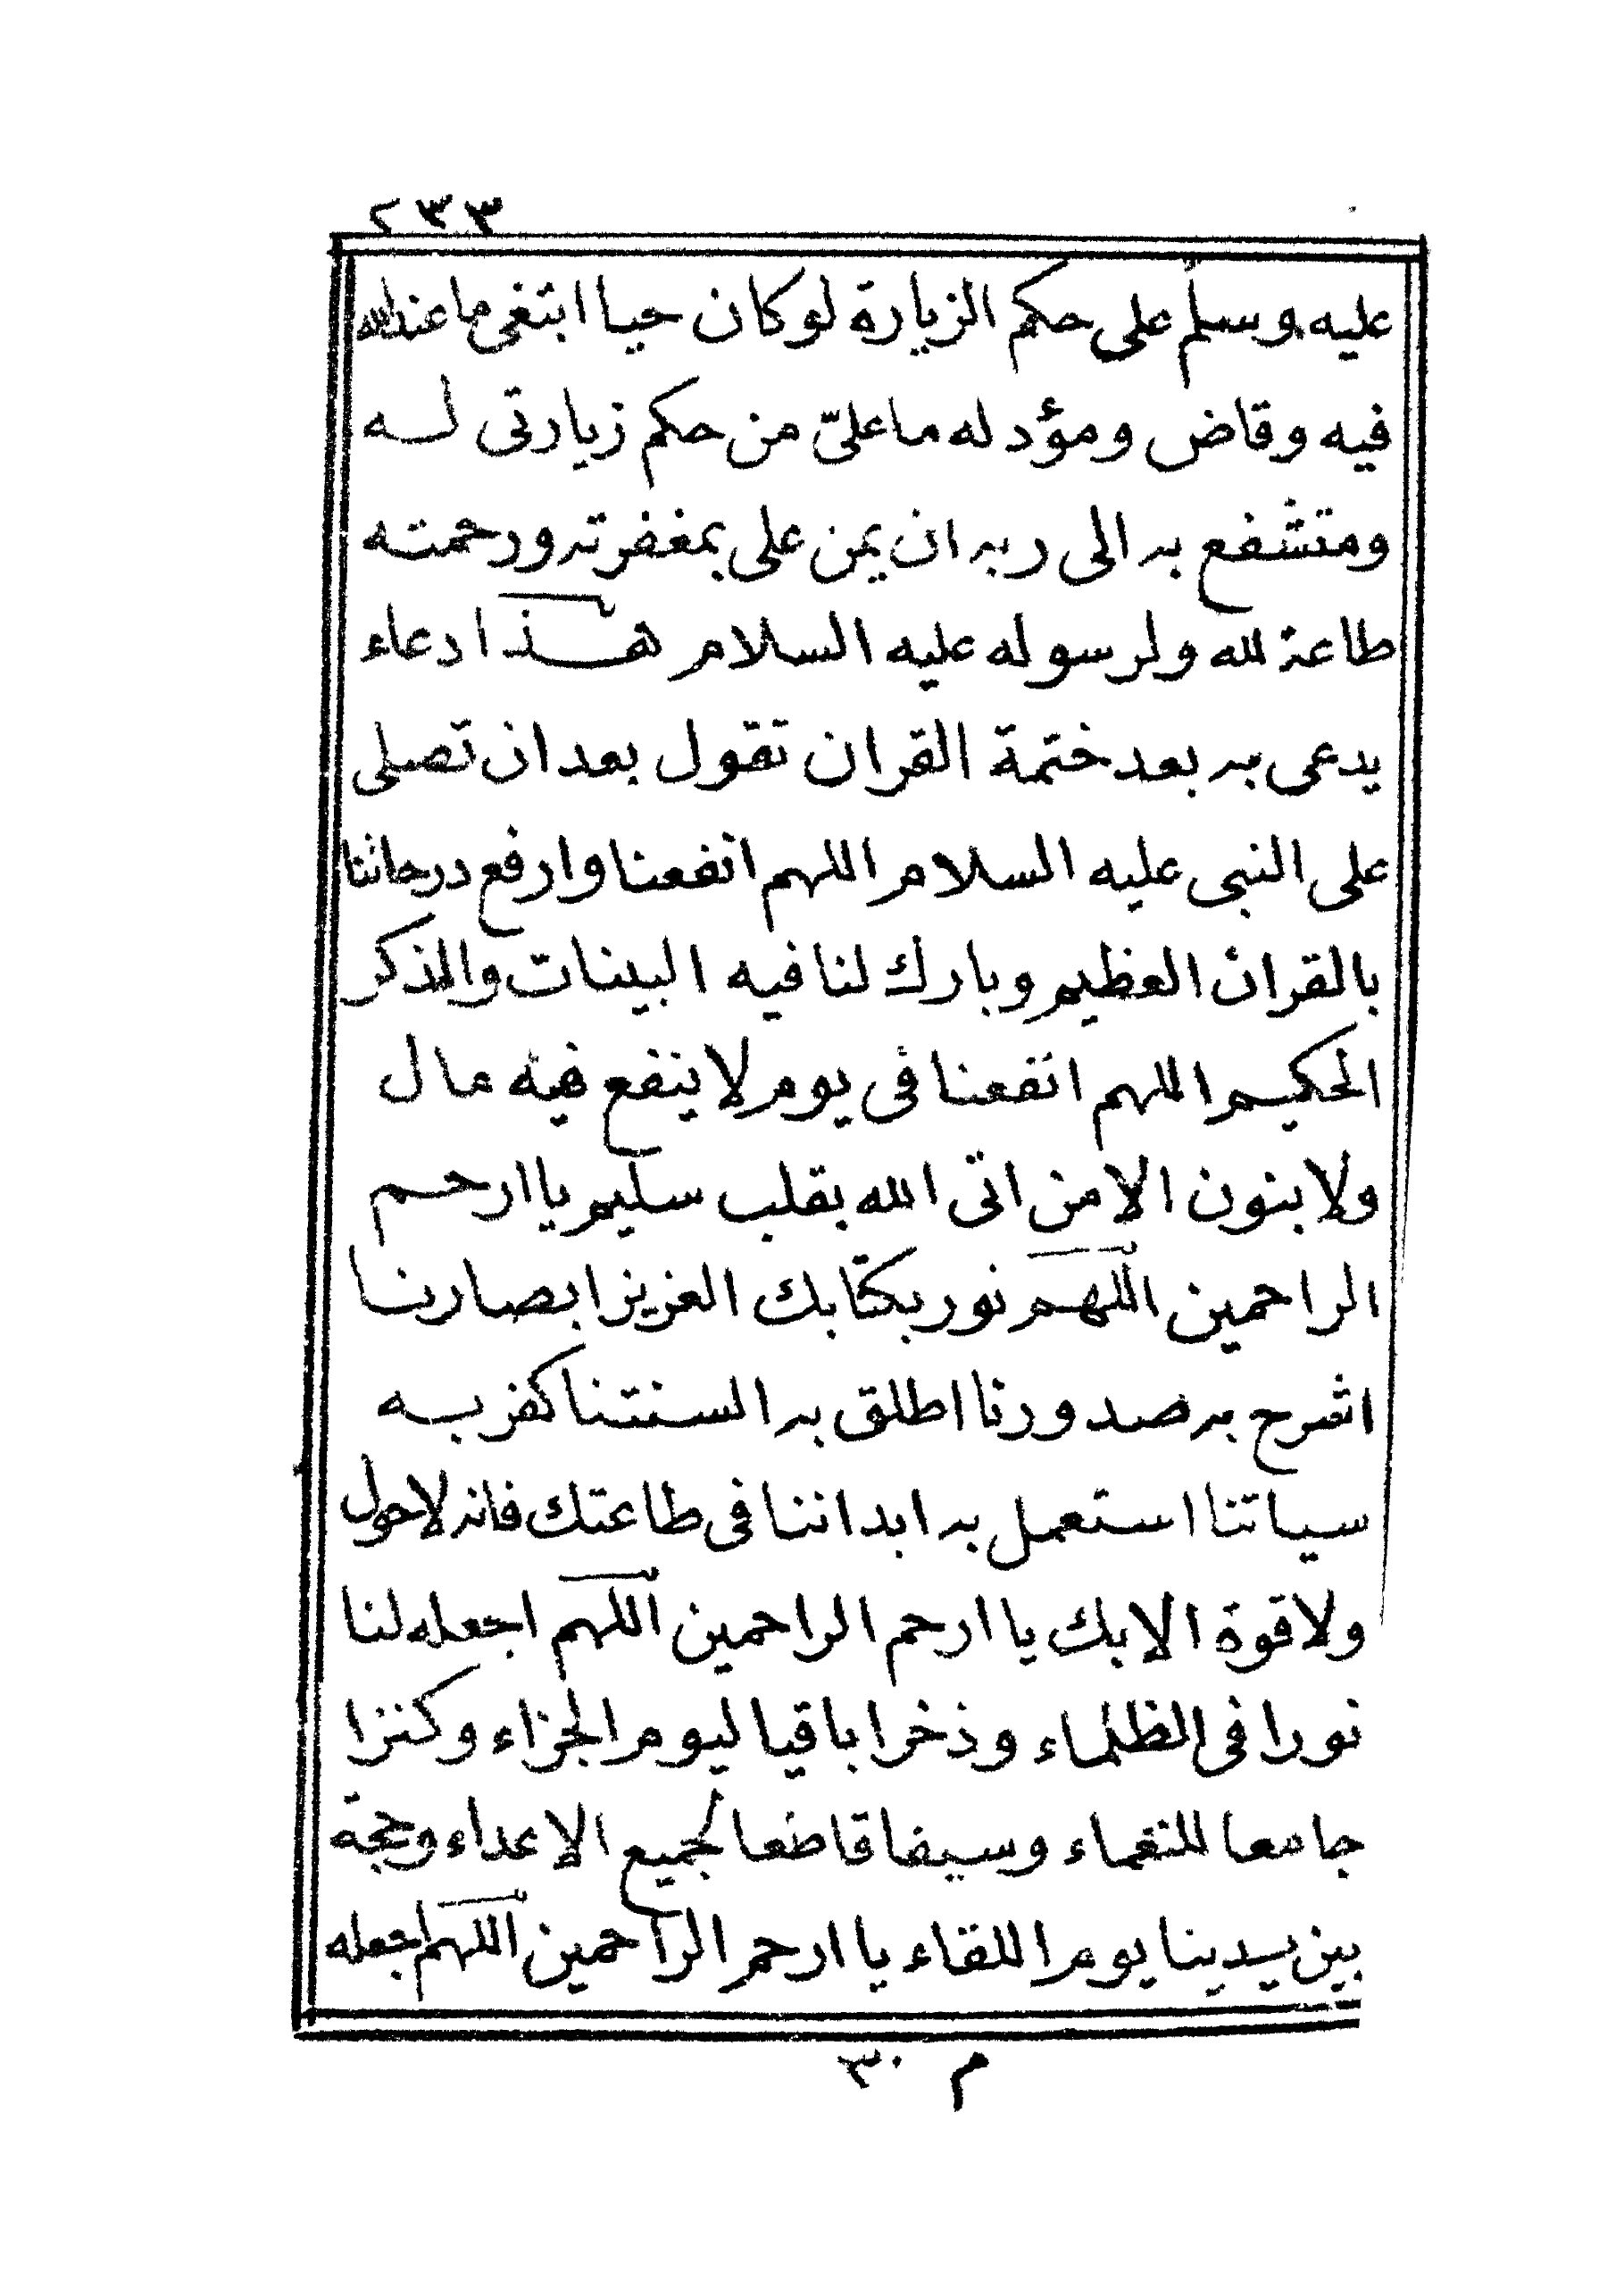 ٢٣٣
عليه وسلم على حكم الزيارة لو كان حيا ابتغى ما عندالله
فيه وقاض ومؤد له ما علىّ من حكم زيارتى له
ومتشفع به الى ربه ان يمن على بمغفرته ورحمته
طاعة لله ولرسوله عليه السلام هذا دعاء
يدعى به بعد ختمة القران تقول بعد ان تصلى
على النبى عليه السلام اللهم انفعنا وارفع درجاتنا
بالقران العظيم وبارك لنا فيه البينات والذكر
الحكيم اللهم انفعنا فى يوم لا ينفع فيه مال
ولا بنون الا من اتى الله بقلب سليم يا ارحم
الراحمين اللهم نور بكتابك العزيز ابصارنا
اشرح به صدورنا اطلق به السنتنا كفر به
سياتنا استعمل به ابداننا فى طاعتك فانه لا حول
ولا قوة الا بك يا ارحم الراحمين اللهم اجعله لنا
نورا فى الظلماء وذخرا باقيا ليوم الجزاء وكنزا
جامعا للنغماء وسيفا قاطعا لجميع الاعداء وحجة
بين يدينا يوم اللقاء يا ارحم الراحمين اللهم اجعله
م ٣٠